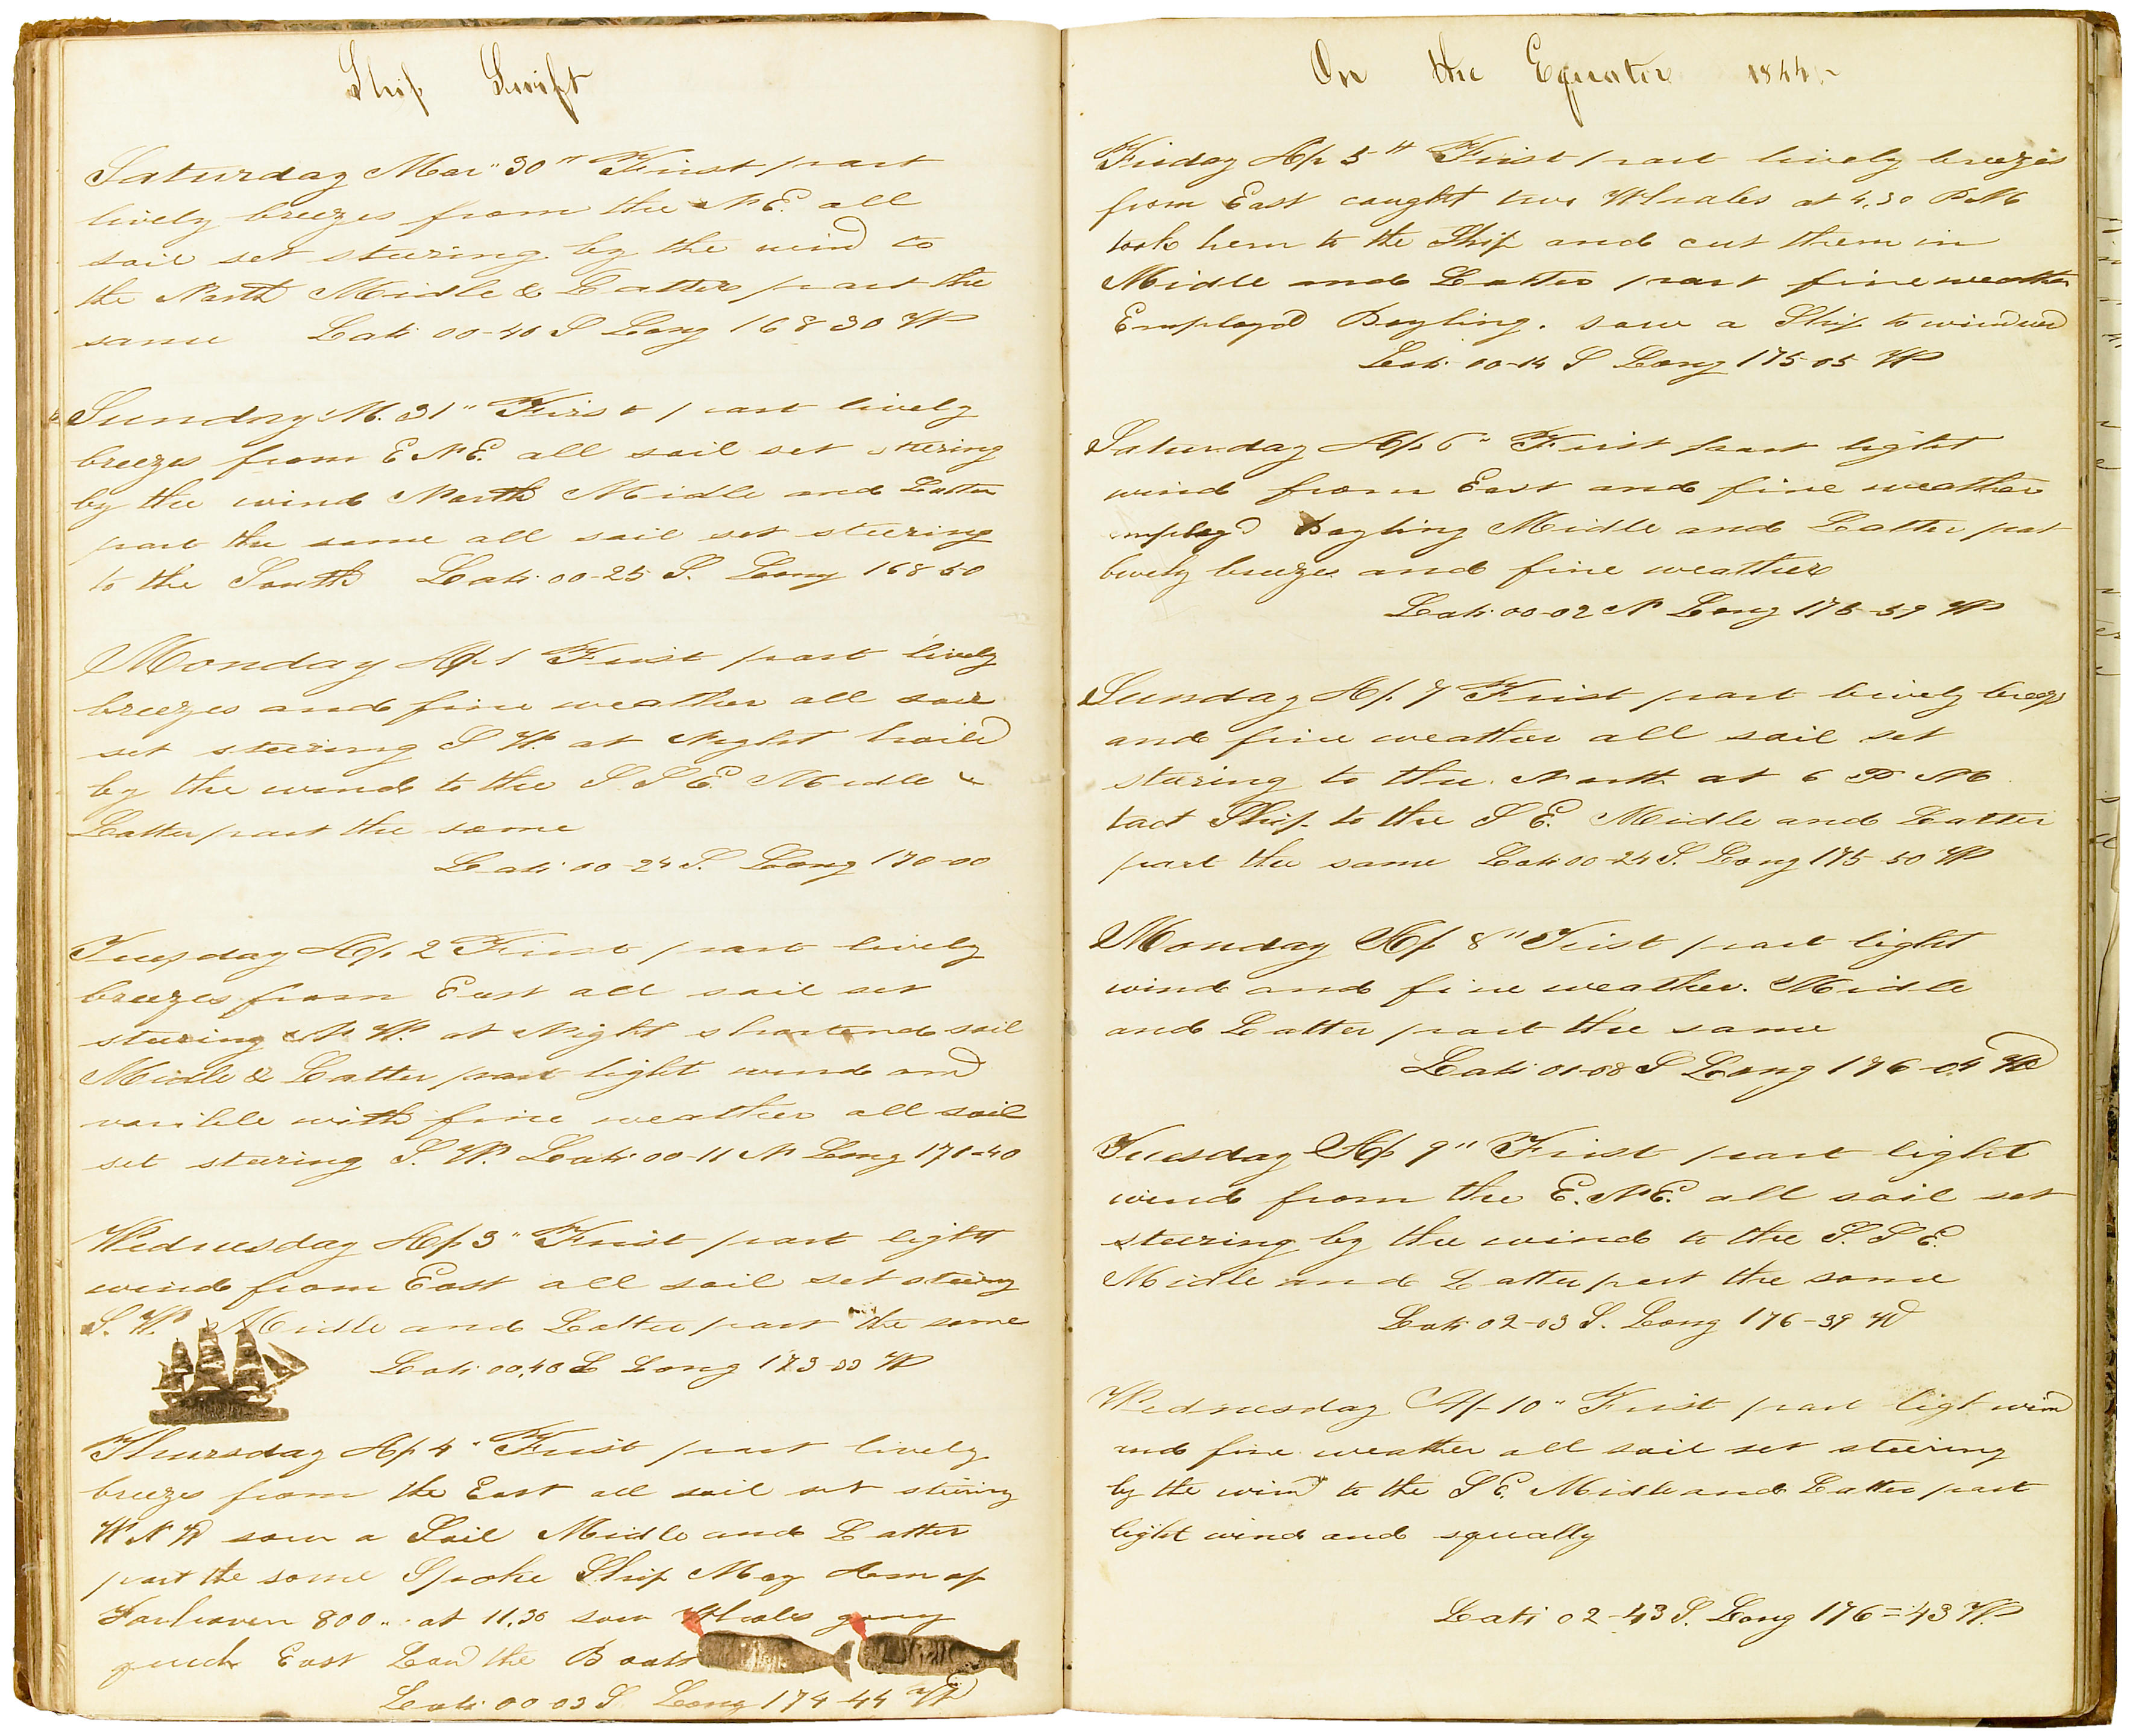 Ship Swift
Saturday Mar " 30 " First part
lively breezes from the N E. all
sail set stering by the wind to
the North Midle & Latter part the
same Lati 00-40 S Long 168 30 W
Sunday M. 31 " First part lively
breezes from E N E. all sail set stering
by the wind North Midle and Latter
part the same all sail set steering
to the South Lati 00-25 S. Long 168 50
Monday Ap 1 First part lively
breezes and fine weather all sail
set steering S W. at Night
by the wind to the S S E Midle &
Latter part the same
Lati 00-24 S. Long 170-00
Tuesday Ap 2 First part lively
breezes from East all sail set
steering N W. at Night shortend sail
Midle & Latter part light wind and
varible with fine weather all sail
set steering S. W. Lati 00-11 N Long 171-40
Wednesday Ap 3 " First part light
wind from East all sail set steering
S. W. Midle and Latter part the same
Lati 00,40 Long 173-00 W
Thursday Ap 4 " First part lively
breezes from the East all sail set steering
W N W saw a Sail Midle and Latter
part the same Spoke Ship of
800 " at 11.30 saw Whales going
East the Boats
Lati 00-03 S Long 174-44 W
On the Equator 1844
Friday Ap 5 " First part lively breezes
from East caught two Whales at 4,30 P M
took hem to the Ship and cut them in
Midle and Latter part fine weather
Employd Boyling. saw a Ship to windward
Lati 00-14 S Long 175-05 W
Saturday Ap 6 " First part light
wind from East and fine weather
employd Boyling Midle and Latter part
lively breezes and fine weather
Lati 00-02 N Long 175-59 W
Sunday Ap 7 First part lively breezes
and fine weather all sail set
staring to the North at 6 P M
tact Ship to the S E. Midle and Latter
part the same Lati 00-24 S. Long 175-50 W
Monday Ap 8 " First part light
wind and fine weather. Midle
and Latter part the same
Lati 01-08 S Long 176-04 W
Tuesday Ap 9 " First part light
wind from the E. N E. all sail set
steering by the wind to the S. S E.
Midle and Latter part the same
Lati 02-03 S. Long 176-39 W
Wednesday Ap 10 " First part ligt wind
and fine weather all sail set steering
by the wind to the S E. Midle and Latter part
light wind and squally
Lati 02-43 S. Long 176=43 W.